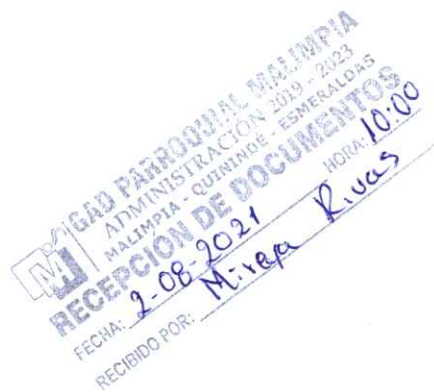 GAD PARROQUIAL MALIMPIA
ADMINISTRACIÓN 2019 - 2023
MALIMPIA - QUININDE - ESMERALDAS
RECEPCIÓN DE DOCUMENTOS
FECHA: 2-08-2021 HORA: 10:00
RECIBIDO POR: Mireya Rivas